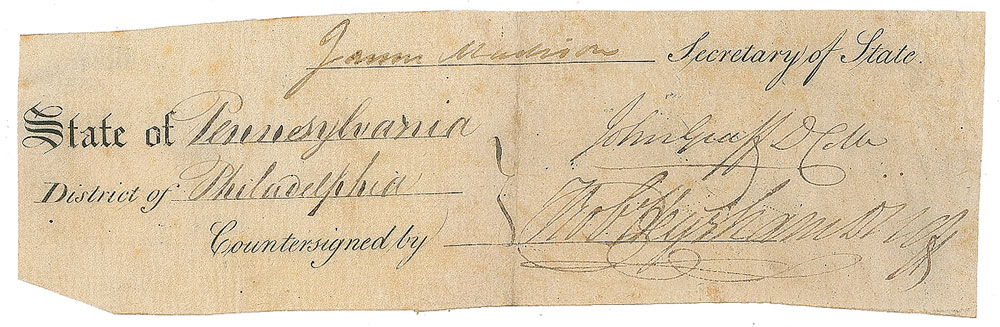 James Madison Secretary of State.
State of Pennsylvania
John Graff D Collr
District of Philadelphia
Countersigned by